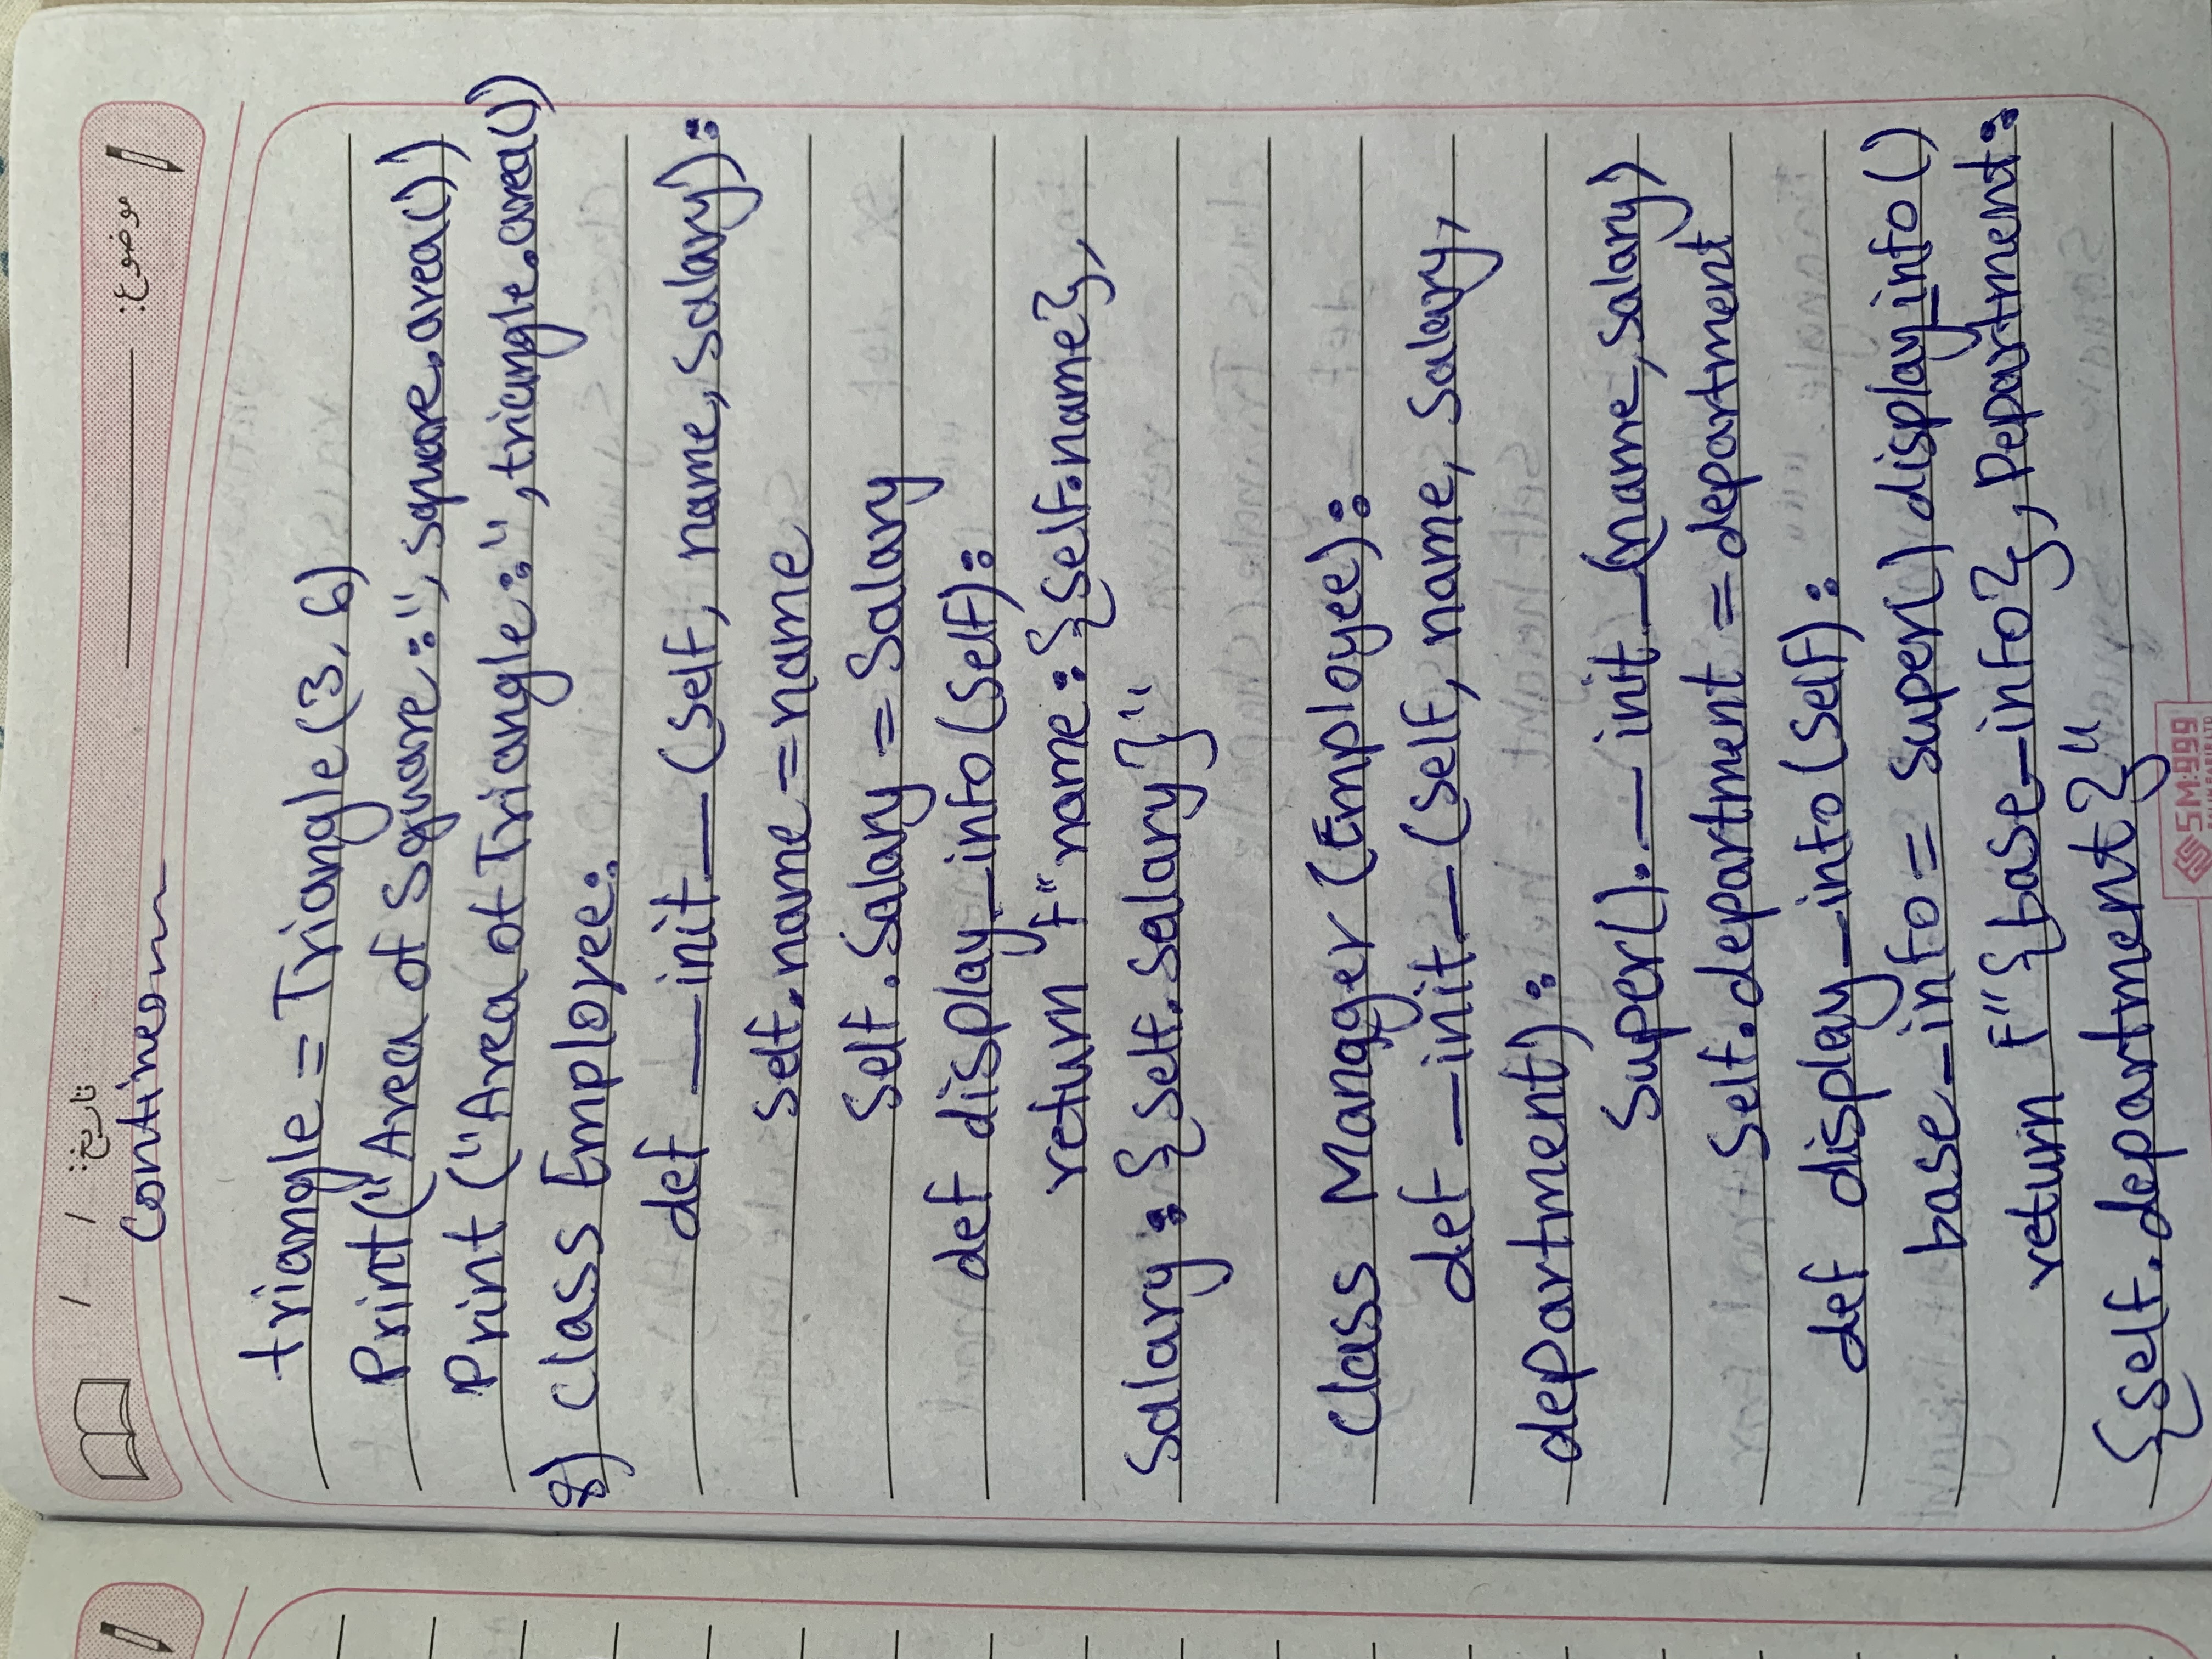 موضوع: تاریخ: / /
triangle = Triangle(3, 6)
Print("Area of Square:", square.area())
Print ("Area of Triangle:", triangle.area())
8) class Employee:
def __init__(self, name, Salary):
Self.name = name
Self.Salary = Salary
def display_info(Self):
return f"name:{Self.name},
Salary: {Self.Salary}"
class Manager (Employee):
def __init__(Self, name, Salary,
department):
Super().__init__(name, Salary)
Self.department = department
def display_info(Self):
base_info = super() display_info()
return f"{base_info}, Department:
{self.department}"
SM:999